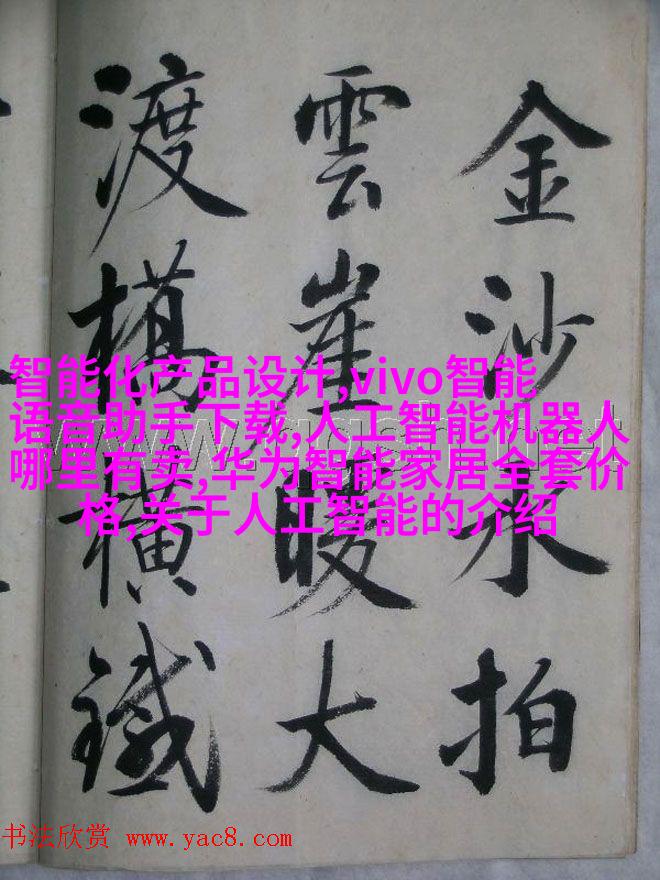 金沙水拍
雲崖暖大
渡橋横鐵
智能化产品设计,vivo智能
语音助手下载,人工智能机器人
哪里有卖,华为智能家居全套价
格,关于人工智能的介绍
书法欣赏 www.yac8.com